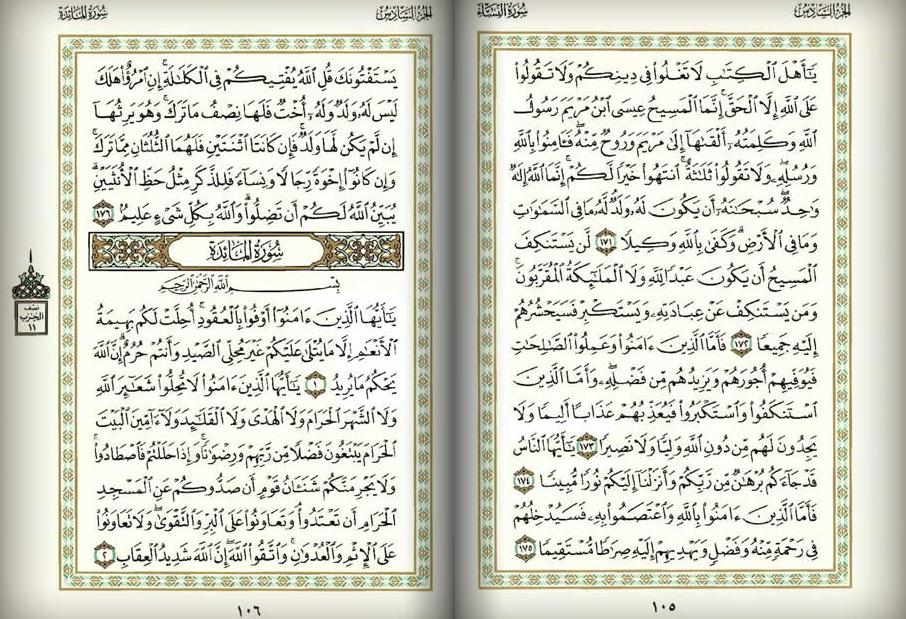 الجزء السادس
سورة النساء
يَٰٓأَهْلَ ٱلْكِتَٰبِ لَا تَغْلُوا۟ فِى دِينِكُمْ وَلَا تَقُولُوا۟
عَلَى ٱللَّهِ إِلَّا ٱلْحَقَّ ۚ إِنَّمَا ٱلْمَسِيحُ عِيسَى ٱبْنُ مَرْيَمَ رَسُولُ
ٱللَّهِ وَكَلِمَتُهُۥٓ أَلْقَىٰهَآ إِلَىٰ مَرْيَمَ وَرُوحٌ مِّنْهُ ۖ فَـَٔامِنُوا۟ بِٱللَّهِ
وَرُسُلِهِۦ ۖ وَلَا تَقُولُوا۟ ثَلَٰثَةٌ ۚ ٱنتَهُوا۟ خَيْرًا لَّكُمْ ۚ إِنَّمَا ٱللَّهُ إِلَٰهٌ
وَٰحِدٌ ۖ سُبْحَٰنَهُۥٓ أَن يَكُونَ لَهُۥ وَلَدٌ ۘ لَّهُۥ مَا فِى ٱلسَّمَٰوَٰتِ
وَمَا فِى ٱلْأَرْضِ ۗ وَكَفَىٰ بِٱللَّهِ وَكِيلًا ١٧١ لَّن يَسْتَنكِفَ
ٱلْمَسِيحُ أَن يَكُونَ عَبْدًا لِّلَّهِ وَلَا ٱلْمَلَٰٓئِكَةُ ٱلْمُقَرَّبُونَ ۚ
وَمَن يَسْتَنكِفْ عَنْ عِبَادَتِهِۦ وَيَسْتَكْبِرْ فَسَيَحْشُرُهُمْ
إِلَيْهِ جَمِيعًا ١٧٢ فَأَمَّا ٱلَّذِينَ ءَامَنُوا۟ وَعَمِلُوا۟ ٱلصَّٰلِحَٰتِ
فَيُوَفِّيهِمْ أُجُورَهُمْ وَيَزِيدُهُم مِّن فَضْلِهِۦ ۖ وَأَمَّا ٱلَّذِينَ
ٱسْتَنكَفُوا۟ وَٱسْتَكْبَرُوا۟ فَيُعَذِّبُهُمْ عَذَابًا أَلِيمًا وَلَا
يَجِدُونَ لَهُم مِّن دُونِ ٱللَّهِ وَلِيًّا وَلَا نَصِيرًا ١٧٣ يَٰٓأَيُّهَا ٱلنَّاسُ
قَدْ جَآءَكُم بُرْهَٰنٌ مِّن رَّبِّكُمْ وَأَنزَلْنَآ إِلَيْكُمْ نُورًا مُّبِينًا ١٧٤
فَأَمَّا ٱلَّذِينَ ءَامَنُوا۟ بِٱللَّهِ وَٱعْتَصَمُوا۟ بِهِۦ فَسَيُدْخِلُهُمْ
فِى رَحْمَةٍ مِّنْهُ وَفَضْلٍ وَيَهْدِيهِمْ إِلَيْهِ صِرَٰطًا مُّسْتَقِيمًا ١٧٥
١٠٥
الجزء السادس
سورة المائدة
يَسْتَفْتُونَكَ قُلِ ٱللَّهُ يُفْتِيكُمْ فِى ٱلْكَلَٰلَةِ ۚ إِنِ ٱمْرُؤٌا۟ هَلَكَ
لَيْسَ لَهُۥ وَلَدٌ وَلَهُۥٓ أُخْتٌ فَلَهَا نِصْفُ مَا تَرَكَ ۚ وَهُوَ يَرِثُهَآ
إِن لَّمْ يَكُن لَّهَا وَلَدٌ ۚ فَإِن كَانَتَا ٱثْنَتَيْنِ فَلَهُمَا ٱلثُّلُثَانِ مِمَّا تَرَكَ ۚ
وَإِن كَانُوٓا۟ إِخْوَةً رِّجَالًا وَنِسَآءً فَلِلذَّكَرِ مِثْلُ حَظِّ ٱلْأُنثَيَيْنِ ۗ
يُبَيِّنُ ٱللَّهُ لَكُمْ أَن تَضِلُّوا۟ ۗ وَٱللَّهُ بِكُلِّ شَىْءٍ عَلِيمٌۢ ١٧٦
سُورَةُ المَائِدَةِ
بِسْمِ ٱللَّهِ ٱلرَّحْمَٰنِ ٱلرَّحِيمِ
يَٰٓأَيُّهَا ٱلَّذِينَ ءَامَنُوٓا۟ أَوْفُوا۟ بِٱلْعُقُودِ ۚ أُحِلَّتْ لَكُم بَهِيمَةُ
ٱلْأَنْعَٰمِ إِلَّا مَا يُتْلَىٰ عَلَيْكُمْ غَيْرَ مُحِلِّى ٱلصَّيْدِ وَأَنتُمْ حُرُمٌ ۗ إِنَّ ٱللَّهَ
يَحْكُمُ مَا يُرِيدُ ١ يَٰٓأَيُّهَا ٱلَّذِينَ ءَامَنُوا۟ لَا تُحِلُّوا۟ شَعَٰٓئِرَ ٱللَّهِ
وَلَا ٱلشَّهْرَ ٱلْحَرَامَ وَلَا ٱلْهَدْىَ وَلَا ٱلْقَلَٰٓئِدَ وَلَآ ءَآمِّينَ ٱلْبَيْتَ
ٱلْحَرَامَ يَبْتَغُونَ فَضْلًا مِّن رَّبِّهِمْ وَرِضْوَٰنًا ۚ وَإِذَا حَلَلْتُمْ فَٱصْطَادُوا۟ ۚ
وَلَا يَجْرِمَنَّكُمْ شَنَـَٔانُ قَوْمٍ أَن صَدُّوكُمْ عَنِ ٱلْمَسْجِدِ
ٱلْحَرَامِ أَن تَعْتَدُوا۟ ۘ وَتَعَاوَنُوا۟ عَلَى ٱلْبِرِّ وَٱلتَّقْوَىٰ ۖ وَلَا تَعَاوَنُوا۟
عَلَى ٱلْإِثْمِ وَٱلْعُدْوَٰنِ ۚ وَٱتَّقُوا۟ ٱللَّهَ ۖ إِنَّ ٱللَّهَ شَدِيدُ ٱلْعِقَابِ ٢
نصف
الحزب
١١
١٠٦